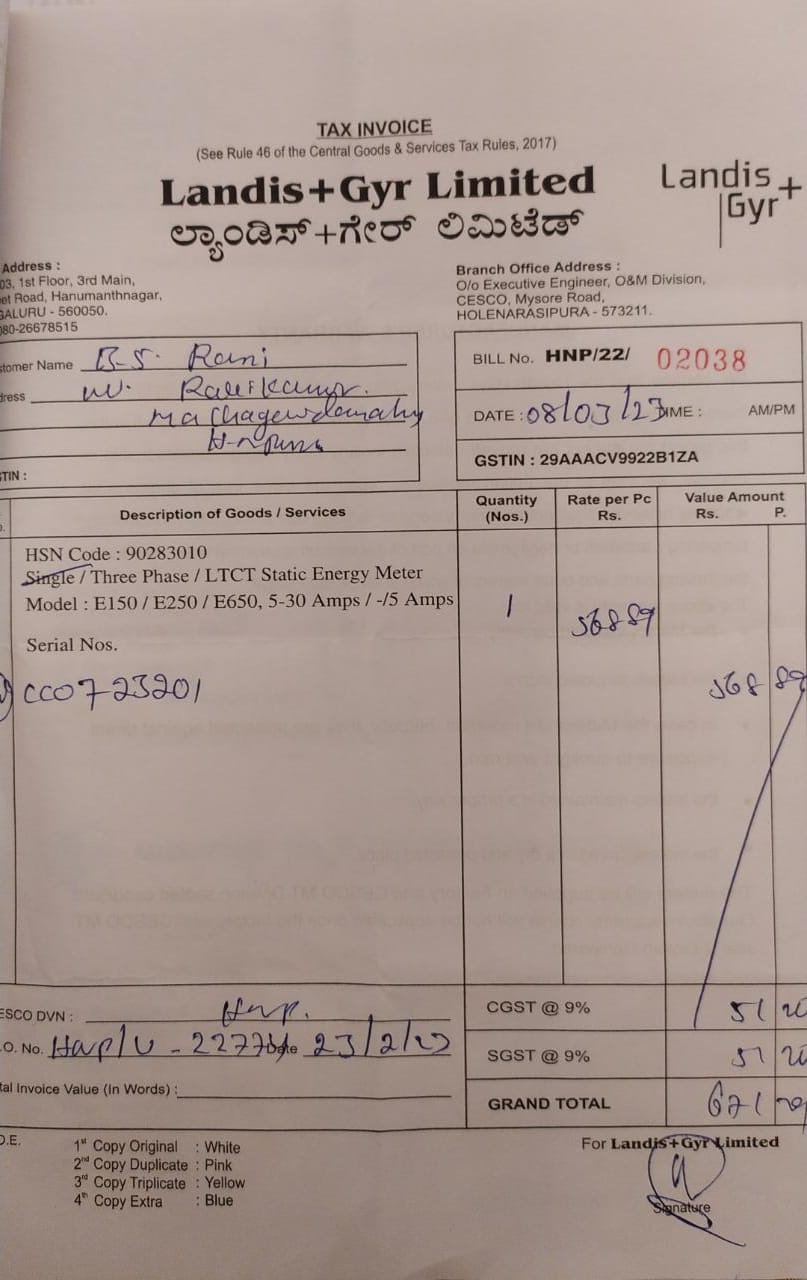 TAX INVOICE
(See Rule 46 of the Central Goods & Services Tax Rules, 2017)
Landis+Gyr Limited
Landis+
Gyr
ಲ್ಯಾಂಡಿಸ್+ಗೇರ್ ಲಿಮಿಟೆಡ್
Address :
03, 1st Floor, 3rd Main,
et Road, Hanumanthnagar,
GALURU - 560050.
080-26678515
Branch Office Address :
O/o Executive Engineer, O&M Division,
CESCO, Mysore Road,
HOLENARASIPURA - 573211.
stomer Name B.S. Rani
dress
H-n pura
TIN :
BILL No. HNP/22/ 02038
DATE : 08/03/23 IME : AM/PM
GSTIN : 29AAACV9922B1ZA
Description of Goods / Services Quantity (Nos.) Rate per Pc Rs. Value Amount Rs. P.
HSN Code : 90283010
Single / Three Phase / LTCT Static Energy Meter
Model : E150 / E250 / E650, 5-30 Amps / -/5 Amps 1 568 89
Serial Nos.
CC0723201 568 89
ESCO DVN : Hnp.
.O. No. Date 23/2/23
tal Invoice Value (In Words) :
CGST @ 9% 51 20
SGST @ 9% 51 20
GRAND TOTAL 671
O.E.
1st Copy Original : White
2nd Copy Duplicate : Pink
3rd Copy Triplicate : Yellow
4th Copy Extra : Blue
For Landis+Gyr Limited
Signature